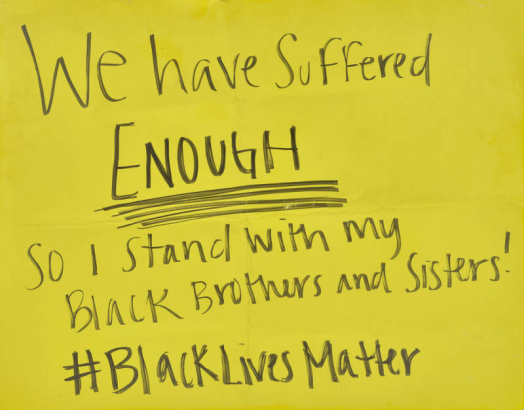 We have Suffered
ENOUGH
So I Stand with my
Black Brothers and Sisters!
#BlackLivesMatter